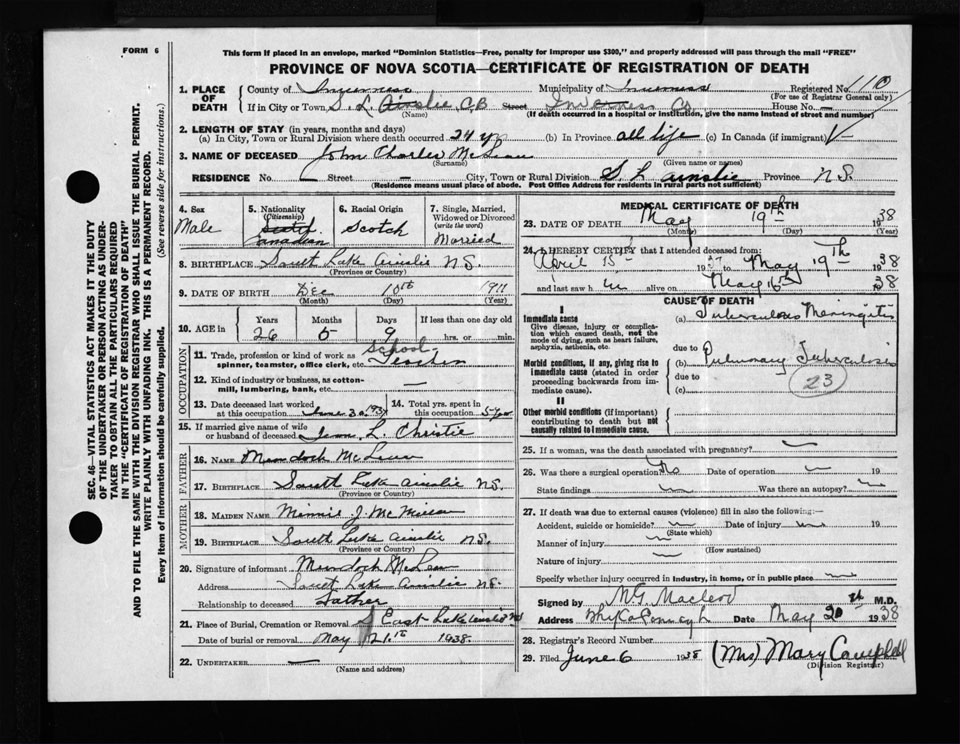 FORM 6
This form if placed in an envelope, marked "Dominion Statistics—Free, penalty for improper use $300," and properly addressed will pass through the mail "FREE"
PROVINCE OF NOVA SCOTIA—CERTIFICATE OF REGISTRATION OF DEATH
SEC. 46—VITAL STATISTICS ACT MAKES IT THE DUTY
OF THE UNDERTAKER OR PERSON ACTING AS UNDER-
TAKER TO OBTAIN ALL THE PARTICULARS REQUIRED
IN THE "CERTIFICATE OF REGISTRATION OF DEATH"
AND TO FILE THE SAME WITH THE DIVISION REGISTRAR WHO SHALL ISSUE THE BURIAL PERMIT.
WRITE PLAINLY WITH UNFADING INK. THIS IS A PERMANENT RECORD.
Every item of information should be carefully supplied. (See reverse side for instructions.)
1. PLACE OF DEATH County of Inverness Municipality of Inverness Registered No. 110
(For use of Registrar General only)
If in City or Town S. L. Ainslie, C.B Street Inverness Co. House No. —
(Name) (If death occurred in a hospital or institution, give the name instead of street and number)
2. LENGTH OF STAY (in years, months and days)
(a) In City, Town or Rural Division where death occurred 24 yr (b) In Province all life (c) In Canada (if immigrant)
3. NAME OF DECEASED John Charles McLean
(Surname) (Given name or names)
RESIDENCE No. Street — City, Town or Rural Division S. L. Ainslie Province N.S.
(Residence means usual place of abode. Post Office Address for residents in rural parts not sufficient)
4. Sex Male
5. Nationality (Citizenship) Canadian
6. Racial Origin Scotch
7. Single, Married, Widowed or Divorced (write the word) Married
8. BIRTHPLACE South Lake Ainslie N.S.
(Province or Country)
9. DATE OF BIRTH Dec 10th 1911
(Month) (Day) (Year)
10. AGE in Years Months Days If less than one day old
26 5 9 hrs. or min.
OCCUPATION
11. Trade, profession or kind of work as spinner, teamster, office clerk, etc. School Teacher
12. Kind of industry or business, as cotton-mill, lumbering, bank, etc. —
13. Date deceased last worked at this occupation June 30 1937 14. Total yrs. spent in this occupation 5 yrs
15. If married give name of wife or husband of deceased Jean L. Christie
FATHER
16. NAME Murdoch McLean
17. BIRTHPLACE South Lake Ainslie N.S.
(Province or Country)
MOTHER
18. MAIDEN NAME Minnie J. McMillan
19. BIRTHPLACE South Lake Ainslie N.S.
(Province or Country)
20. Signature of informant Murdoch McLean
Address South Lake Ainslie N.S.
Relationship to deceased Father
21. Place of Burial, Cremation or Removal East Lake Ainslie N.S
Date of burial or removal May 21st 1938.
22. UNDERTAKER —
(Name and address)
MEDICAL CERTIFICATE OF DEATH
23. DATE OF DEATH May 19th 1938
(Month) (Day) (Year)
24. I HEREBY CERTIFY that I attended deceased from:
April 15 1937 to May 19th 1938
and last saw him alive on May 16th 1938
CAUSE OF DEATH
I
Immediate cause (a) Tuberculous Meningitis
Give disease, injury or complication which caused death, not the mode of dying, such as heart failure, asphyxia, asthenia, etc.
due to
Morbid conditions, if any, giving rise to immediate cause (stated in order proceeding backwards from immediate cause). (b) Pulmonary Tuberculosis
due to
(c) 23
II
Other morbid conditions (if important) contributing to death but not causally related to immediate cause.
25. If a woman, was the death associated with pregnancy?
26. Was there a surgical operation? No Date of operation 19
State findings Was there an autopsy?
27. If death was due to external causes (violence) fill in also the following:—
Accident, suicide or homicide? Date of injury 19
(State which)
Manner of injury
(How sustained)
Nature of injury
Specify whether injury occurred in industry, in home, or in public place
Signed by M.G. Macleod M.D.
Address Date May 20th 1938
28. Registrar's Record Number
29. Filed June 6 1938 (Mrs) Mary Campbell
(Division Registrar)